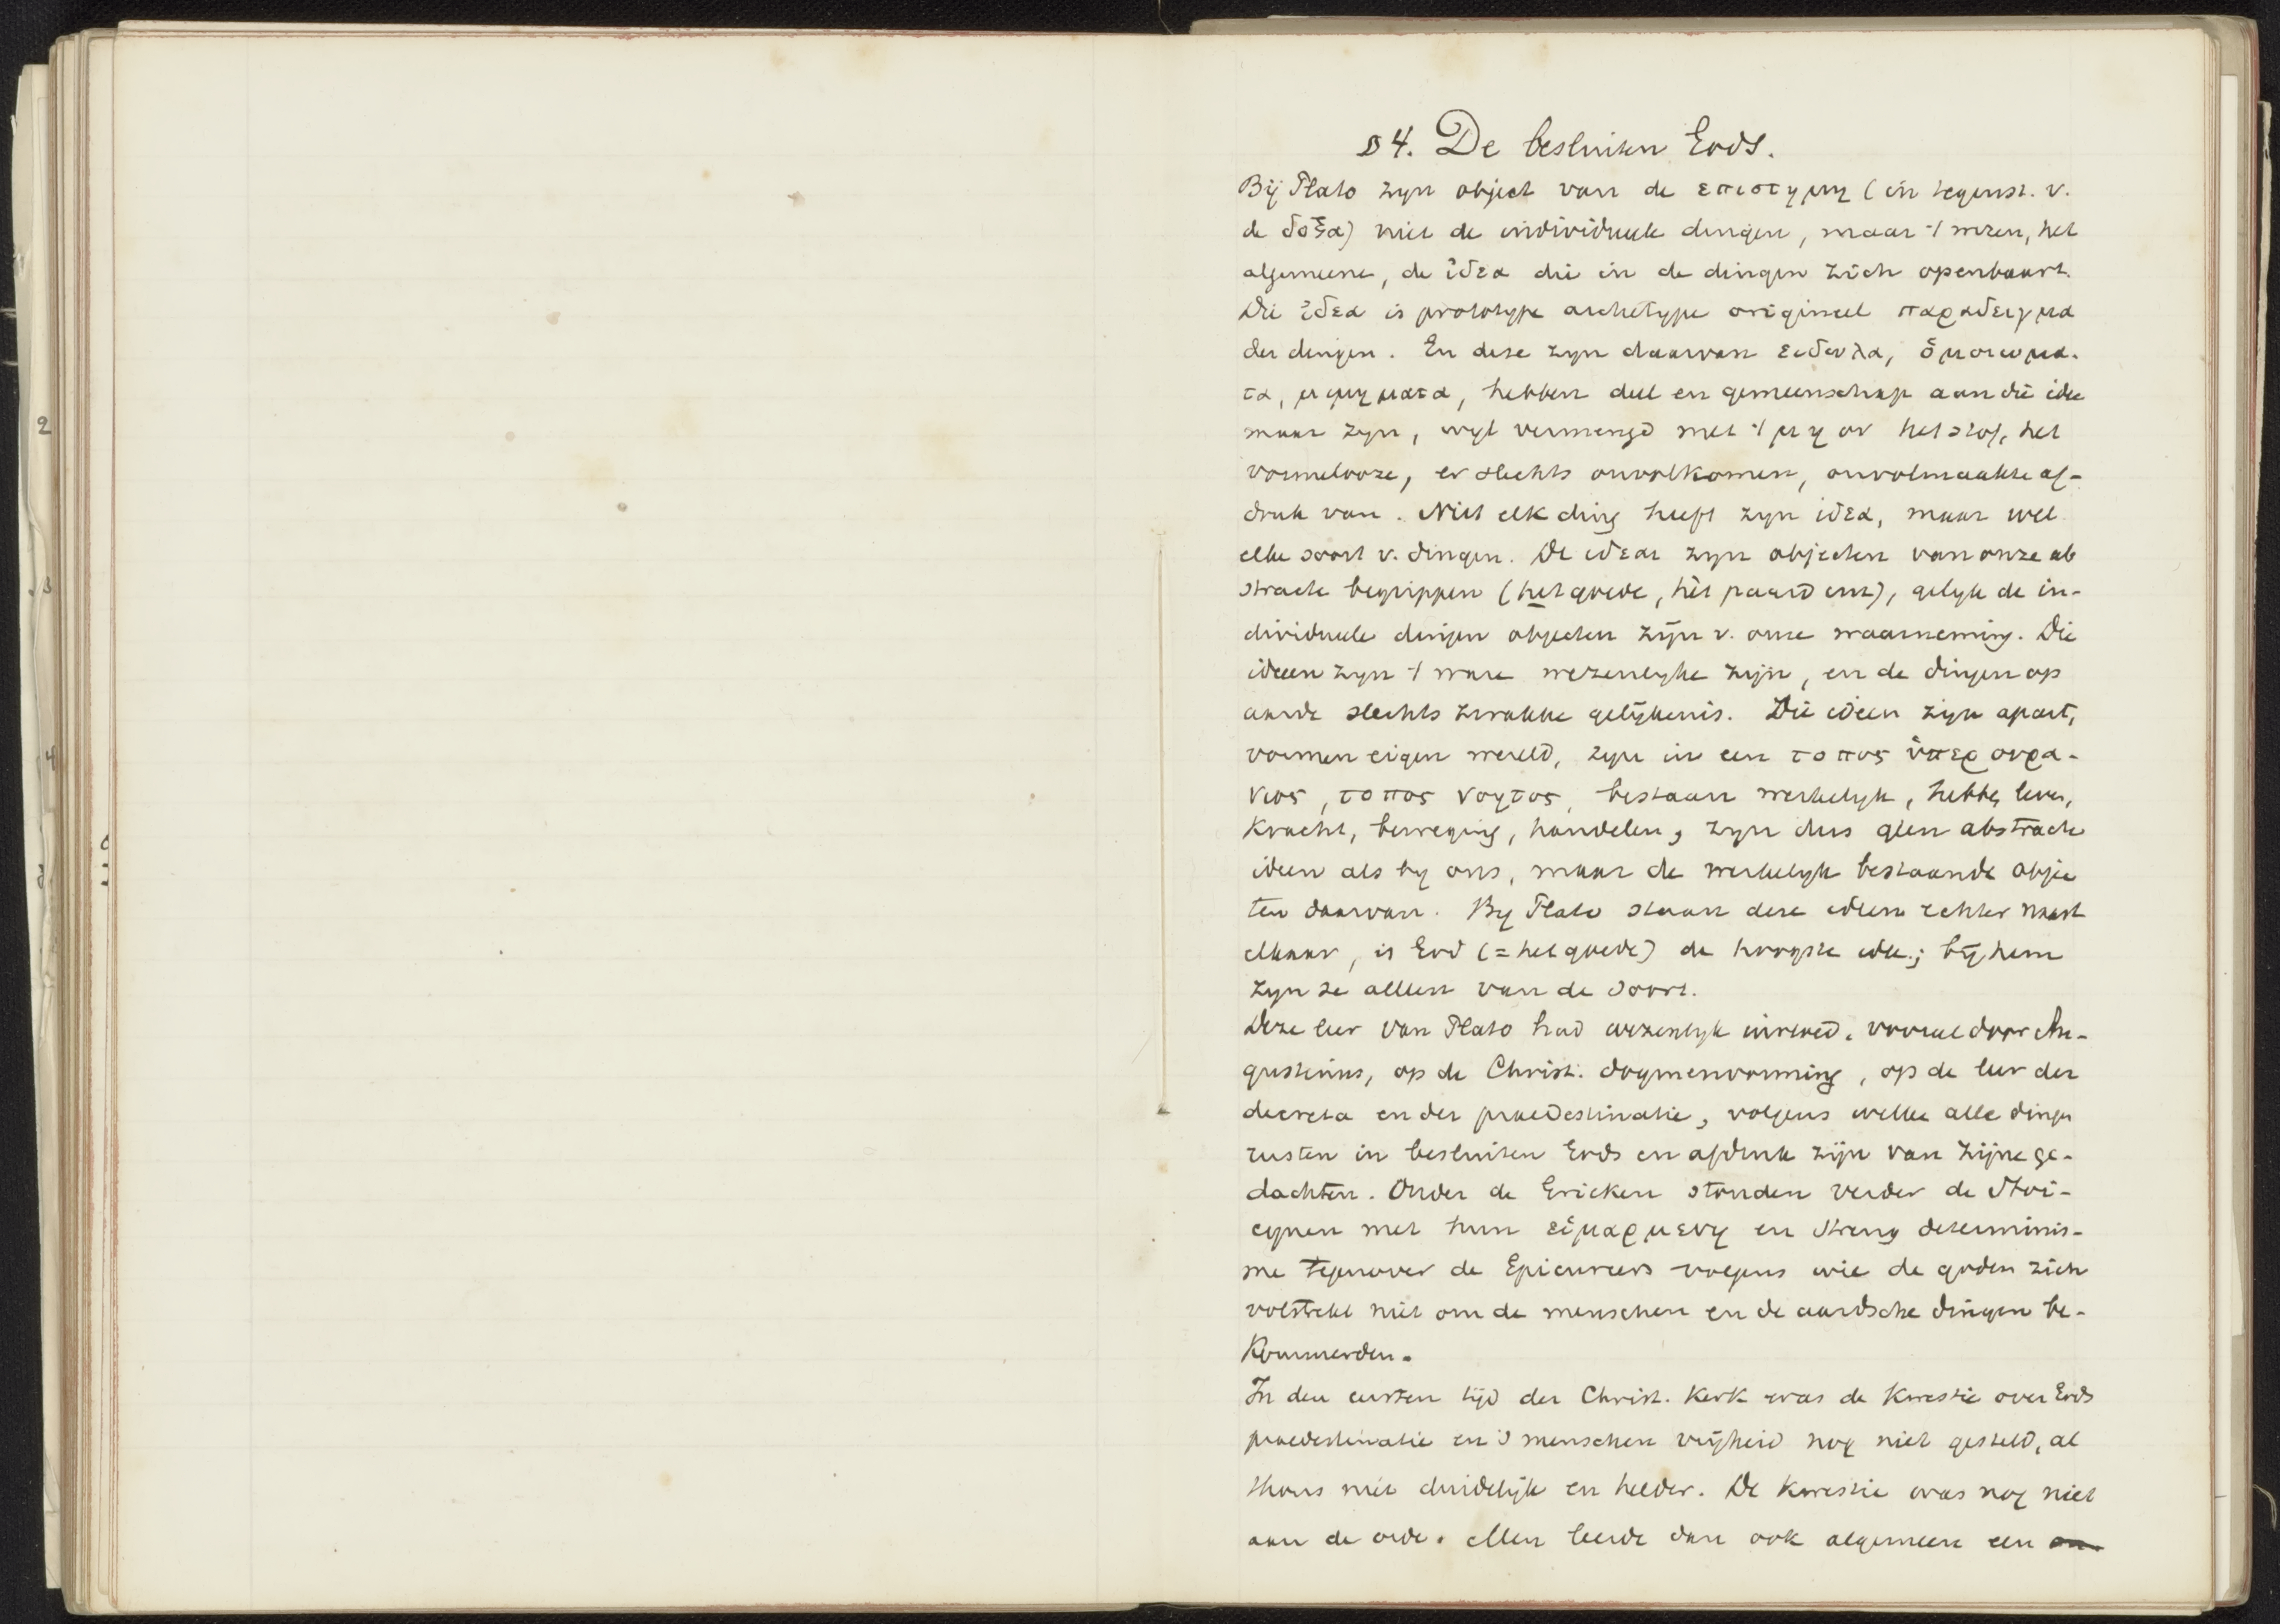 § 4. De besluiten Gods.
Bij Plato zijn object van de επιστημη (in tegenst. v.
de δοξα) niet de individueele dingen, maar 't wezen, het
algemeene, de ἰδεα die in de dingen zich openbaart.
Die ἰδεα is prototype archetype origineel παραδειγμα
der dingen. En deze zijn daarvan ειδωλα, ὁμοιωμα-
τα, μιμηματα, hebben deel en gemeenschap aan die idee
maar zijn, wijl vermengd met 't μη ον het stof, het
vormelooze, er slechts onvolkomen, onvolmaakte af-
druk van. Niet elk ding heeft zijn ιδεα, maar wel
elke soort v. dingen. De ιδεαι zijn objecten van onze ab
stracte begrippen (het goede, hèt paard enz), gelijk de in-
dividueele dingen objecten zijn v. onze waarneming. Die
ideeen zijn 't ware wezenlijke zijn, en de dingen op
aarde slechts zwakke gelijkenis. Die ideen zijn apart,
vormen eigen wereld, zijn in een τοπος ὑπερουρα-
νιος, τοπος νοητος, bestaan werkelijk, hebben leven,
kracht, beweging, handelen, zijn dus geen abstracte
ideen als bij ons, maar de werkelijk bestaande objec
ten daarvan. Bij Plato staan deze ideen echter naast
elkaar, is God (= het goede) de hoogste idee; bij hem
zijn ze alleen van de soort.
Deze leer van Plato had wezenlijk invloed, vooral door Au-
gustinus, op de Christ. dogmenvorming, op de leer der
decreta en der praedestinatie, volgens welke alle dingen
rusten in besluiten Gods en afdruk zijn van zijne ge-
dachten. Onder de Grieken stonden verder de Stoi-
cynen met hun εἱμαρμενη en streng determinis-
me tegenover de Epicureers volgens wie de goden zich
volstrekt niet om de menschen en de aardsche dingen be-
kommerden.
In den eersten tijd der Christ. Kerk was de kwestie over Gods
praedestinatie en 's menschen vrijheid nog niet gesteld, al
thans niet duidelijk en helder. De kwestie was nog niet
aan de orde. Men leerde dan ook algemeen een
2
3
4